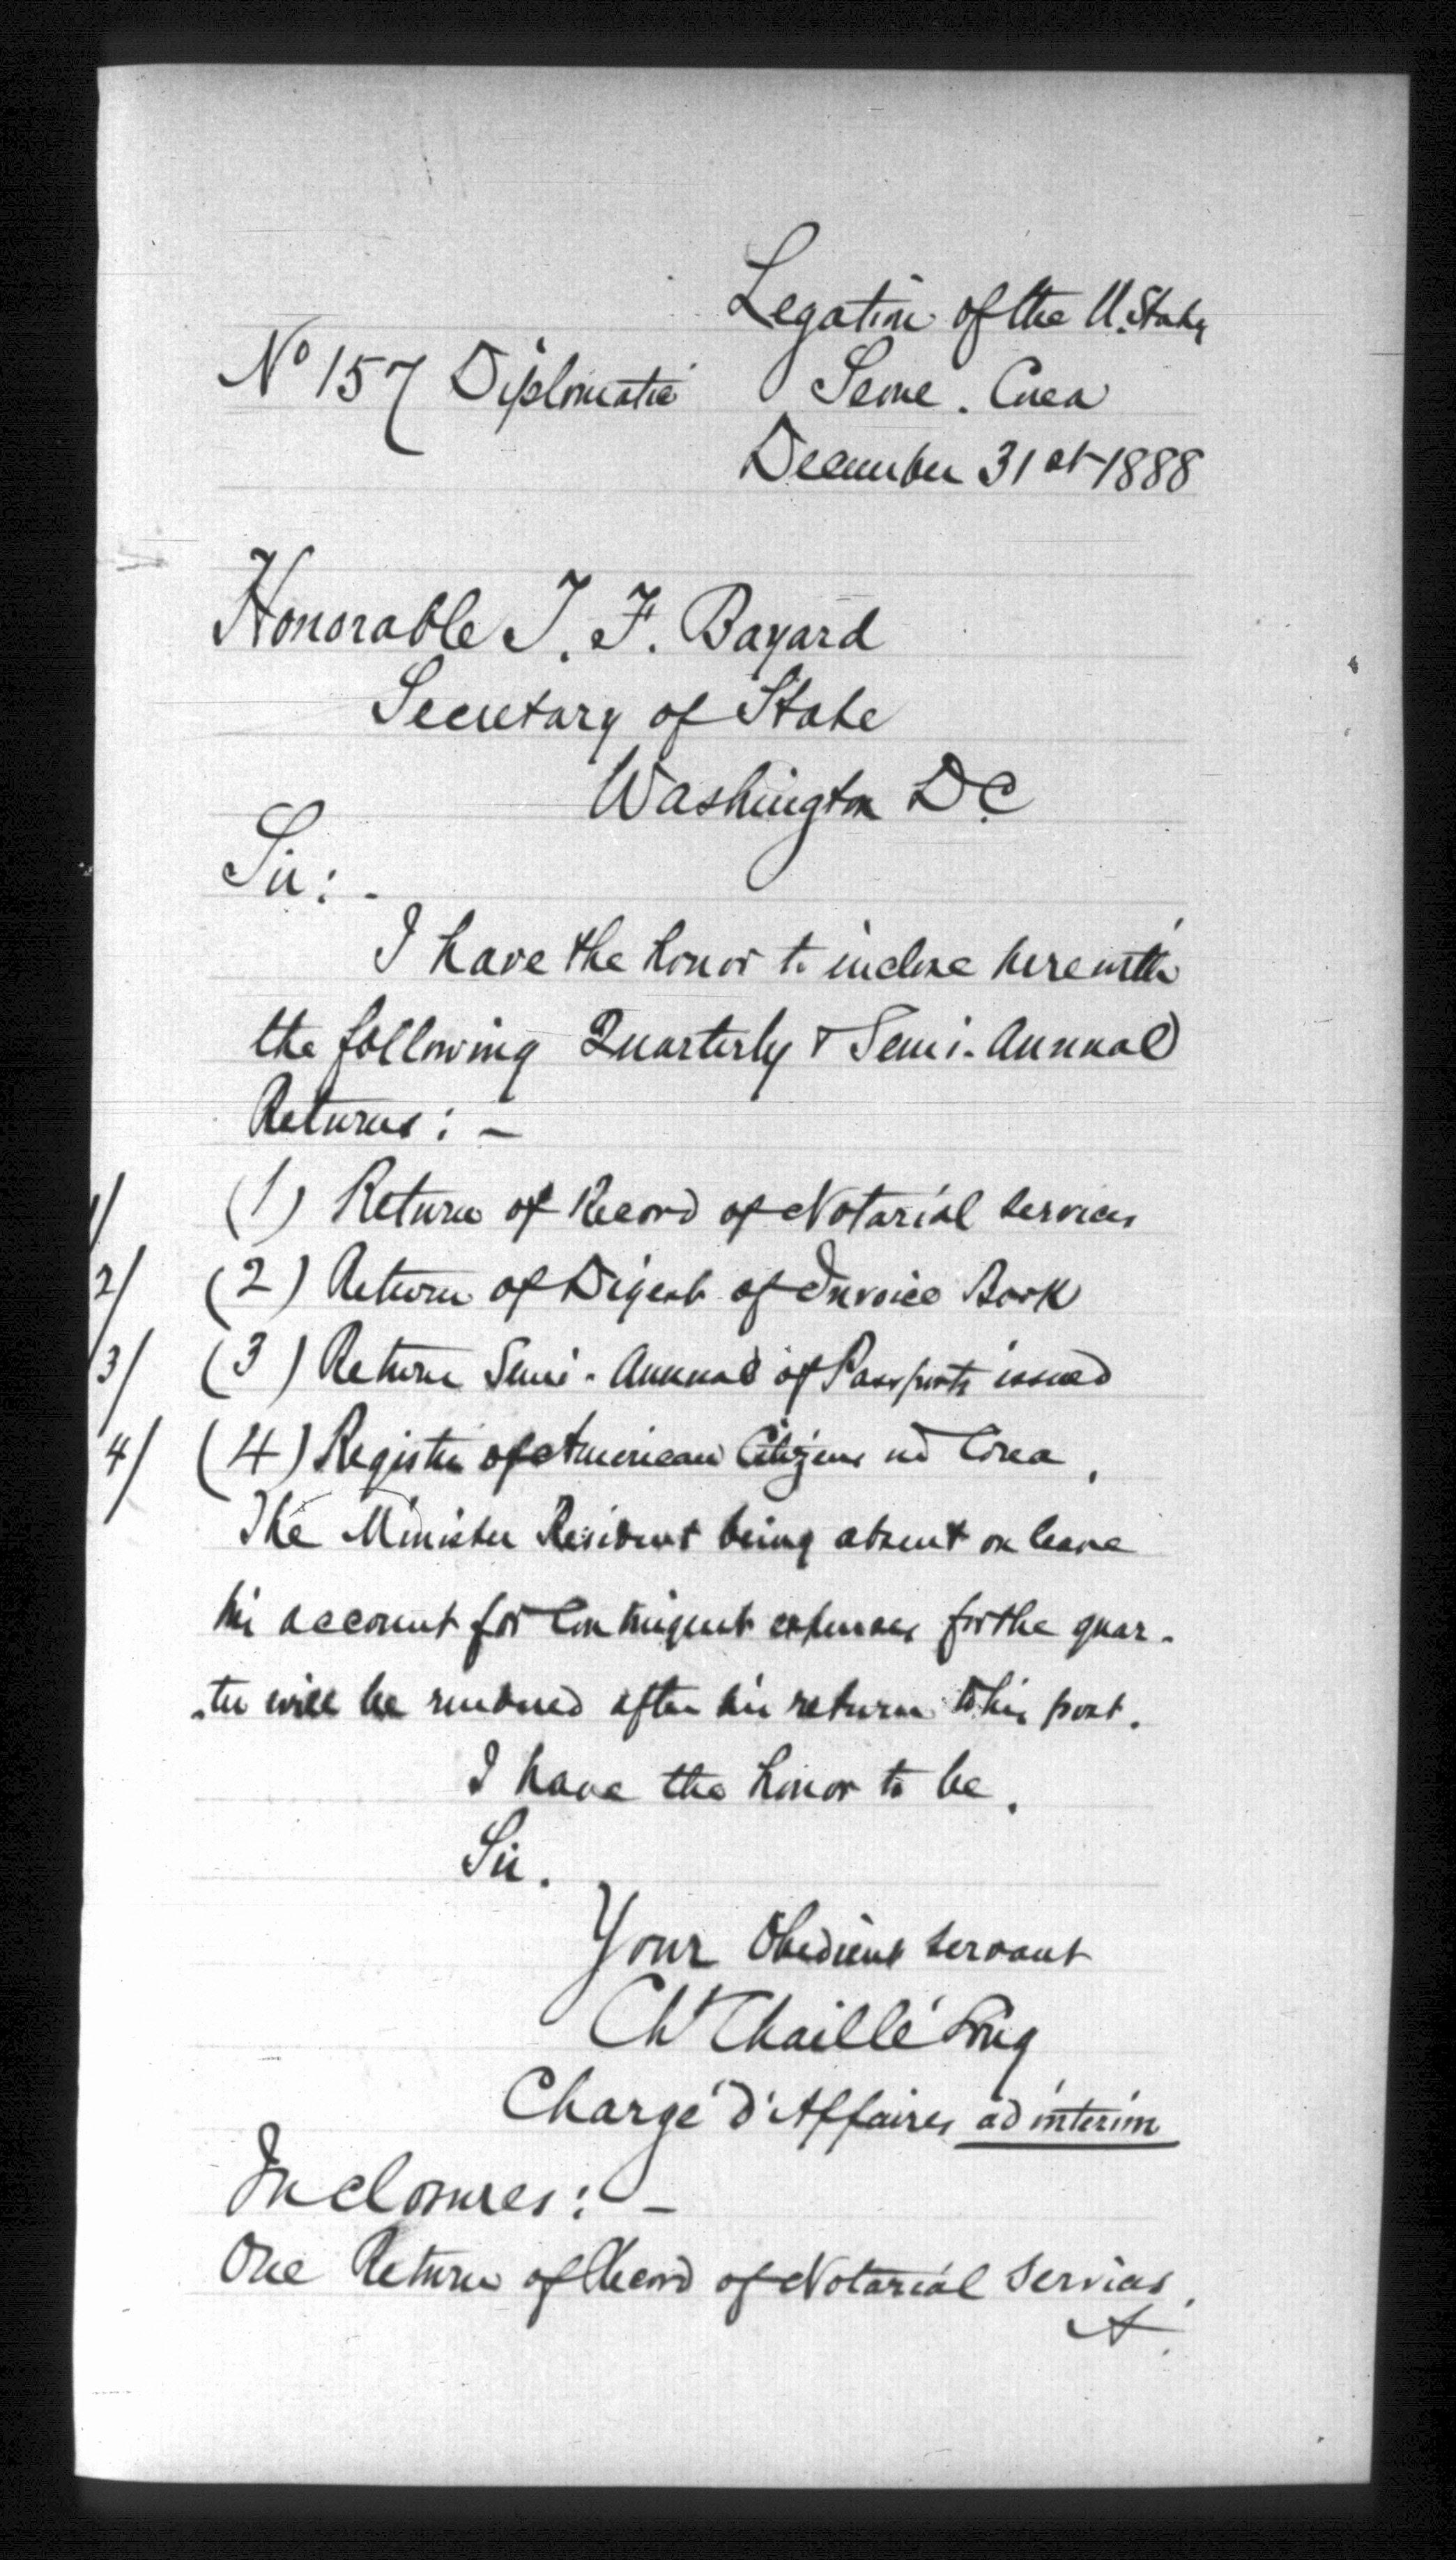 Legation of the U. States
No 157 Diplomatic Seoul. Corea
December 31st 1888
Honorable T. F. Bayard
Secretary of State
Washington D.C
Sir: -
I have the honor to inclose herewith
the following Quarterly & Semi-Annual
Returns: -
1/ (1) Return of Record of Notarial services
2/ (2) Return of Digest of Invoice Book
3/ (3) Return Semi-Annual of Passports issued
4/ (4) Register of American Citizens in Corea.
The Minister Resident being absent on leave
his account for Contingent expenses for the quar-
-ter will be rendered after his return to his post.
I have the honor to be,
Sir.
Your Obedient servant
Ch Chaillé Long
Chargé d'Affaires ad interim
Inclosures: -
One Return of Record of Notarial Services.